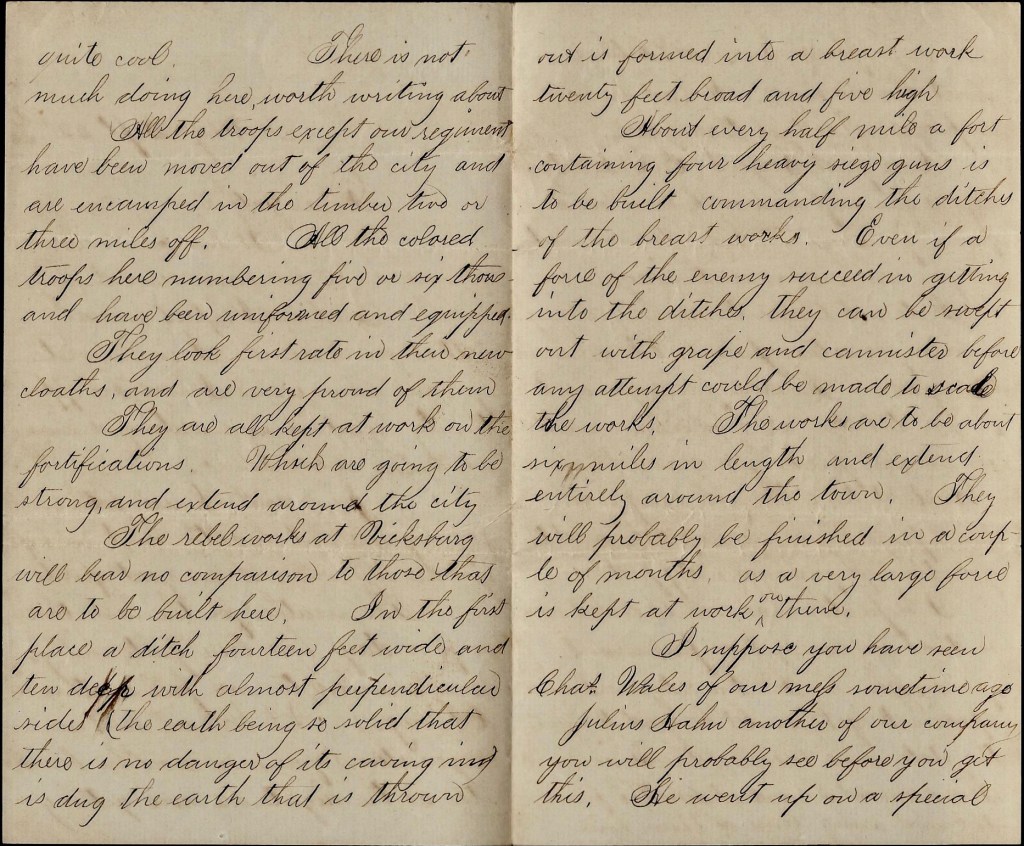 quite cool. There is not
much doing here, worth writing about
All the troops except our regiment
have been moved out of the city and
are encamped in the timber two or
three miles off. All the colored
troops here numbering five or six thous-
and have been uniformed and equipped.
They look first rate in their new
cloaths, and are very proud of them
They are all kept at work on the
fortifications. Which are going to be
strong, and extend around the city
The rebel works at Vicksburg
will bear no comparison to those that
are to be built here. In the first
place a ditch fourteen feet wide and
ten deep with almost perpendicular
sides (the earth being so solid that
there is no danger of its caving in)
is dug the earth that is thrown
out is formed into a breast work
twenty feet broad and five high
About every half mile a fort
containing four heavy siege guns is
to be built commanding the ditches
of the breast works. Even if a
force of the enemy succeed in getting
into the ditches, they can be swept
out with grape and cannister before
any attempt could be made to scale
the works. The works are to be about
six miles in length and extend
entirely around the town. They
will probably be finished in a coup-
le of months, as a very large force
is kept at work on them.
I suppose you have seen
Chas. Wales of our mess sometime ago
Julius Hahn another of our company
you will probably see before you get
this. He went up on a special